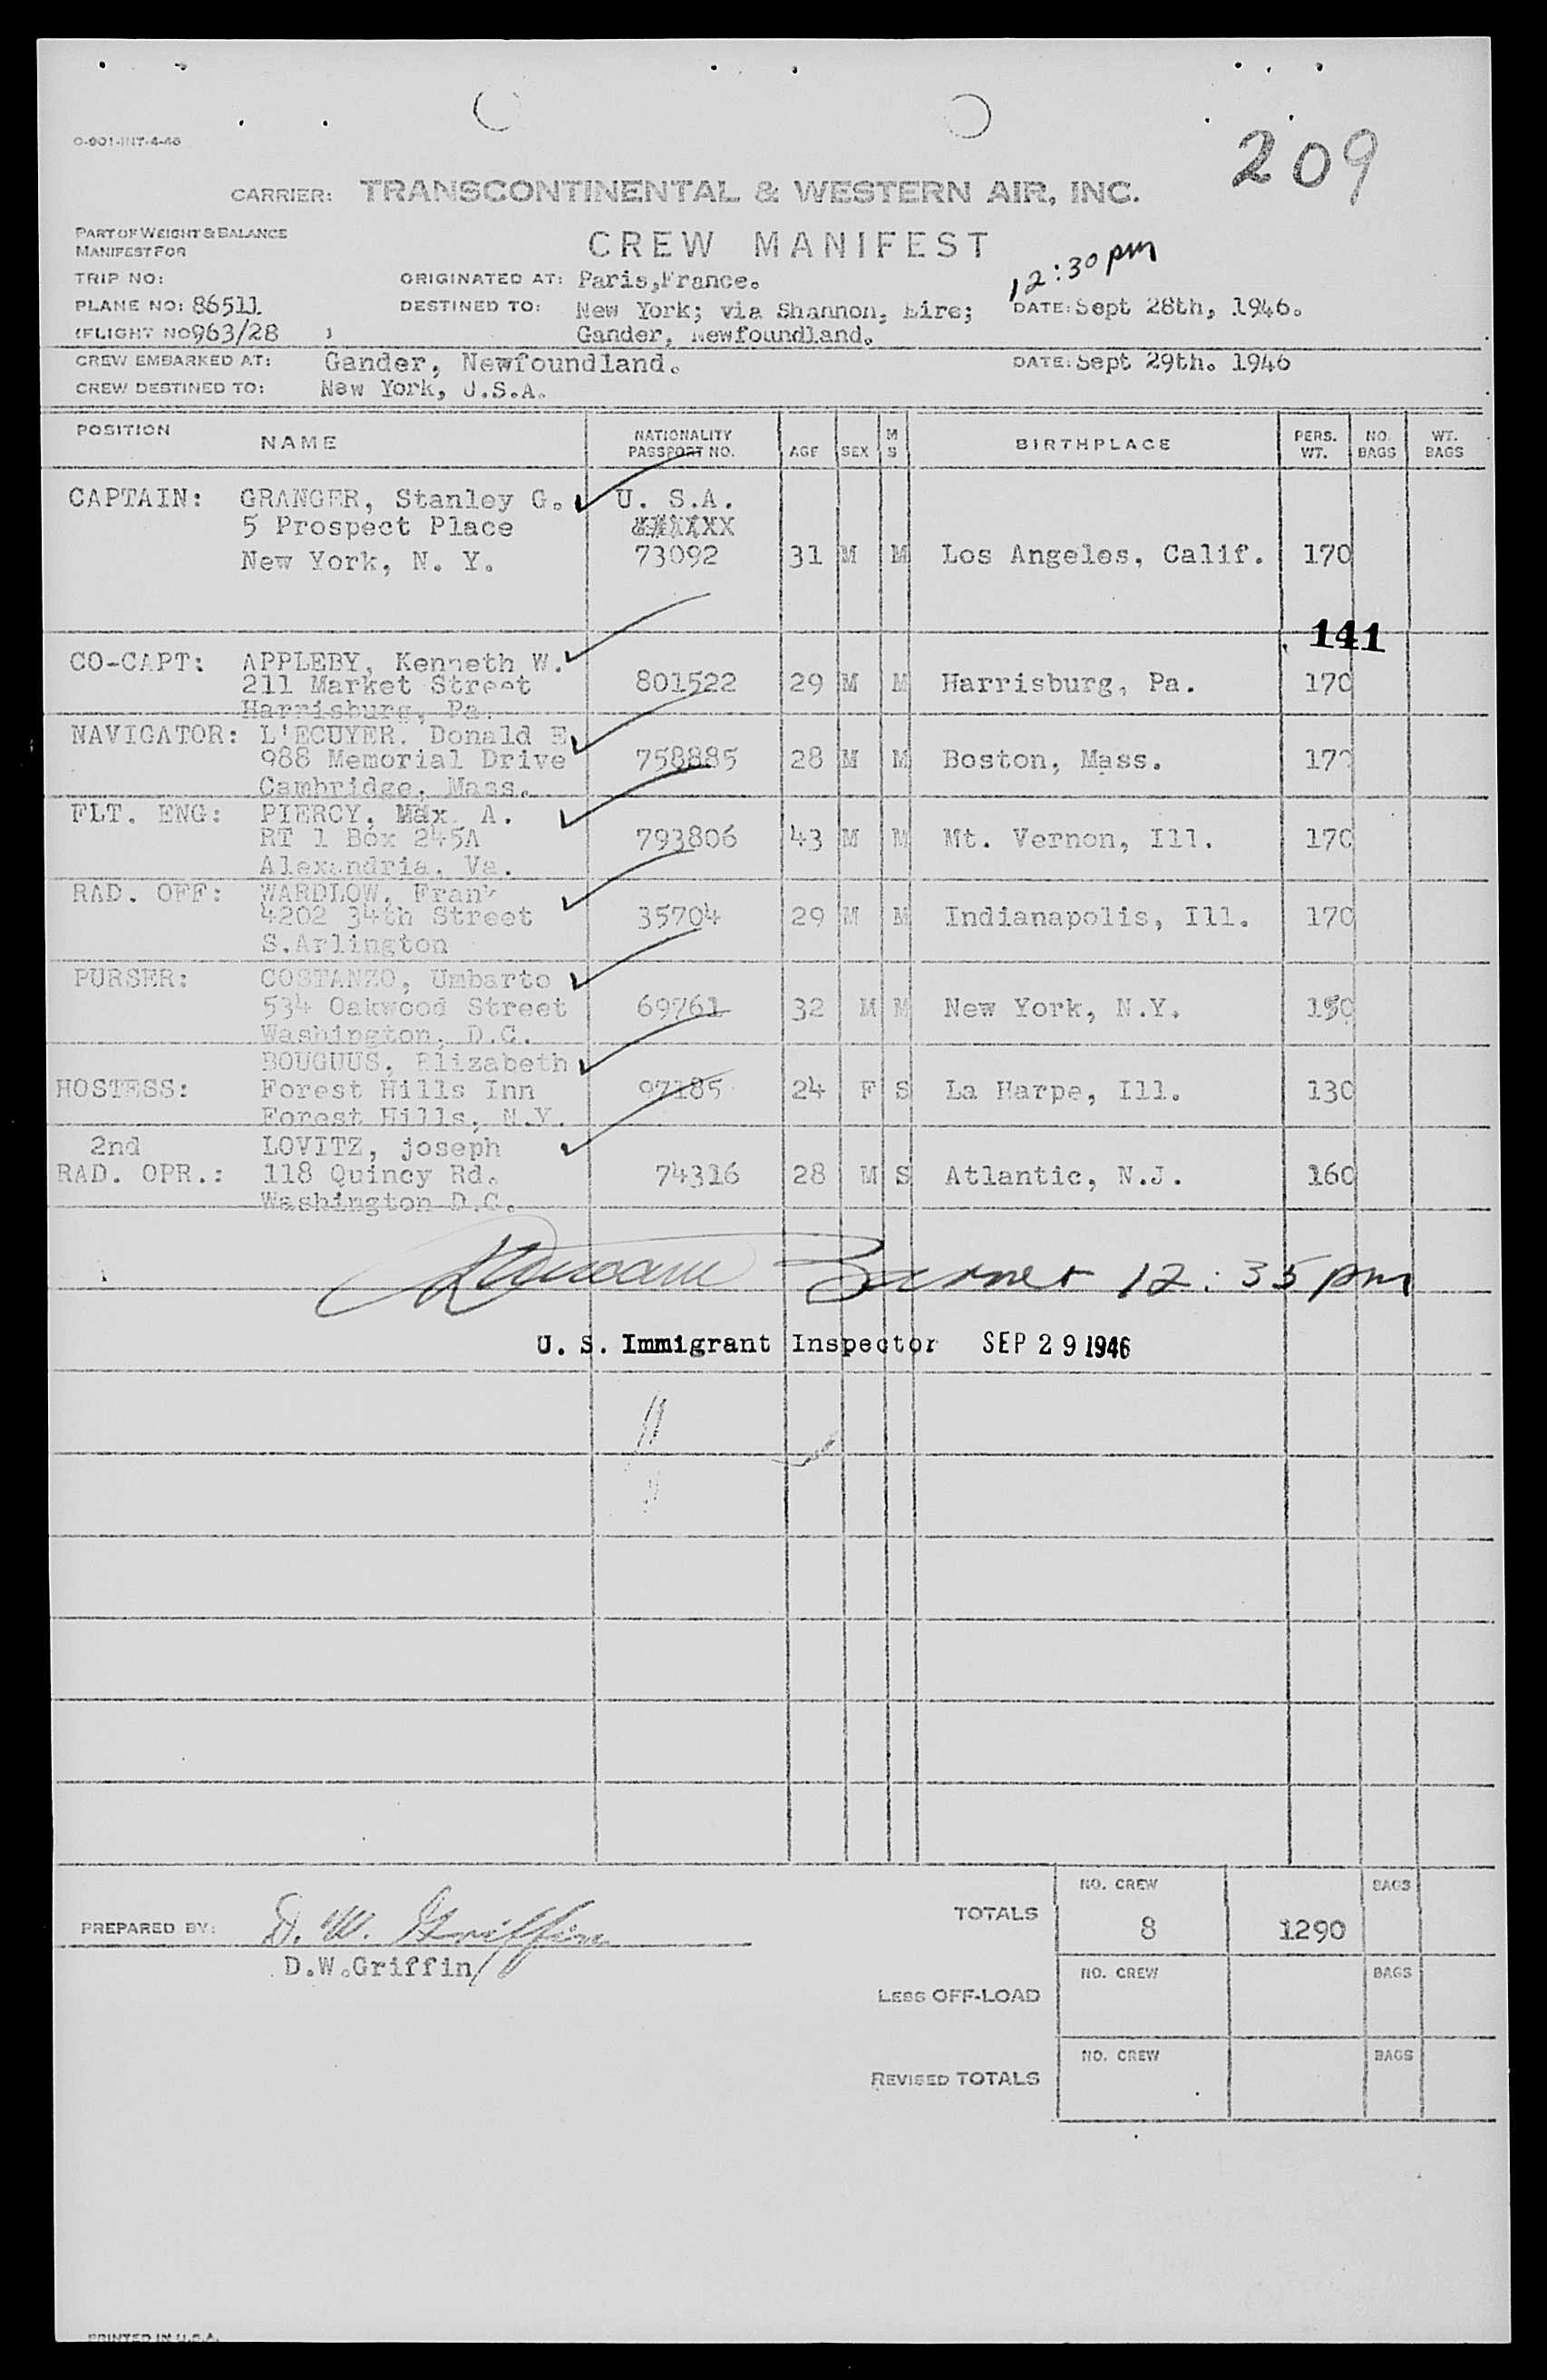 209
O-901-INT-4-46
CARRIER: TRANSCONTINENTAL & WESTERN AIR, INC.
PART OF WEIGHT & BALANCE
MANIFEST FOR
CREW MANIFEST
12:30 pm
TRIP NO: ORIGINATED AT: Paris,France.
PLANE NO: 86511 DESTINED TO: New York; via Shannon, Eire; DATE: Sept 28th, 1946.
(FLIGHT NO 963/28 ) Gander, Newfoundland.
CREW EMBARKED AT: Gander, Newfoundland. DATE: Sept 29th. 1946
CREW DESTINED TO: New York, U.S.A.
POSITION NAME NATIONALITY PASSPORT NO. AGE SEX M S BIRTHPLACE PERS. WT. NO. BAGS WT. BAGS
CAPTAIN: GRANGER, Stanley G. U. S.A.
5 Prospect Place
New York, N. Y. 73092 31 M M Los Angeles, Calif. 170
141
CO-CAPT: APPLEBY, Kenneth W.
211 Market Street 801522 29 M M Harrisburg, Pa. 170
Harrisburg, Pa.
NAVIGATOR: L'ECUYER. Donald E.
988 Memorial Drive 758885 28 M M Boston, Mass. 170
Cambridge, Mass.
FLT. ENG: PIERCY, Max A.
RT 1 Box 245A 793806 43 M M Mt. Vernon, Ill. 170
Alexandria, Va.
RAD. OFF: WARDLOW, Frank
4202 34th Street 35704 29 M M Indianapolis, Ill. 170
S.Arlington
PURSER: COSTANZO, Umbarto
534 Oakwood Street 69761 32 M M New York, N.Y. 150
Washington, D.C.
BOUGUUS, Elizabeth
HOSTESS: Forest Hills Inn 97185 24 F S La Harpe, Ill. 130
Forest Hills, N.Y.
2nd LOVITZ, joseph
RAD. OPR.: 118 Quincy Rd. 74316 28 M S Atlantic, N.J. 160
Washington D.C.
12:35 pm
U. S. Immigrant Inspector SEP 29 1946
NO. CREW BAGS
PREPARED BY: D. W. Griffin TOTALS 8 1290
D.W.Griffin
NO. CREW BAGS
LESS OFF-LOAD
NO. CREW BAGS
REVISED TOTALS
PRINTED IN U.S.A.